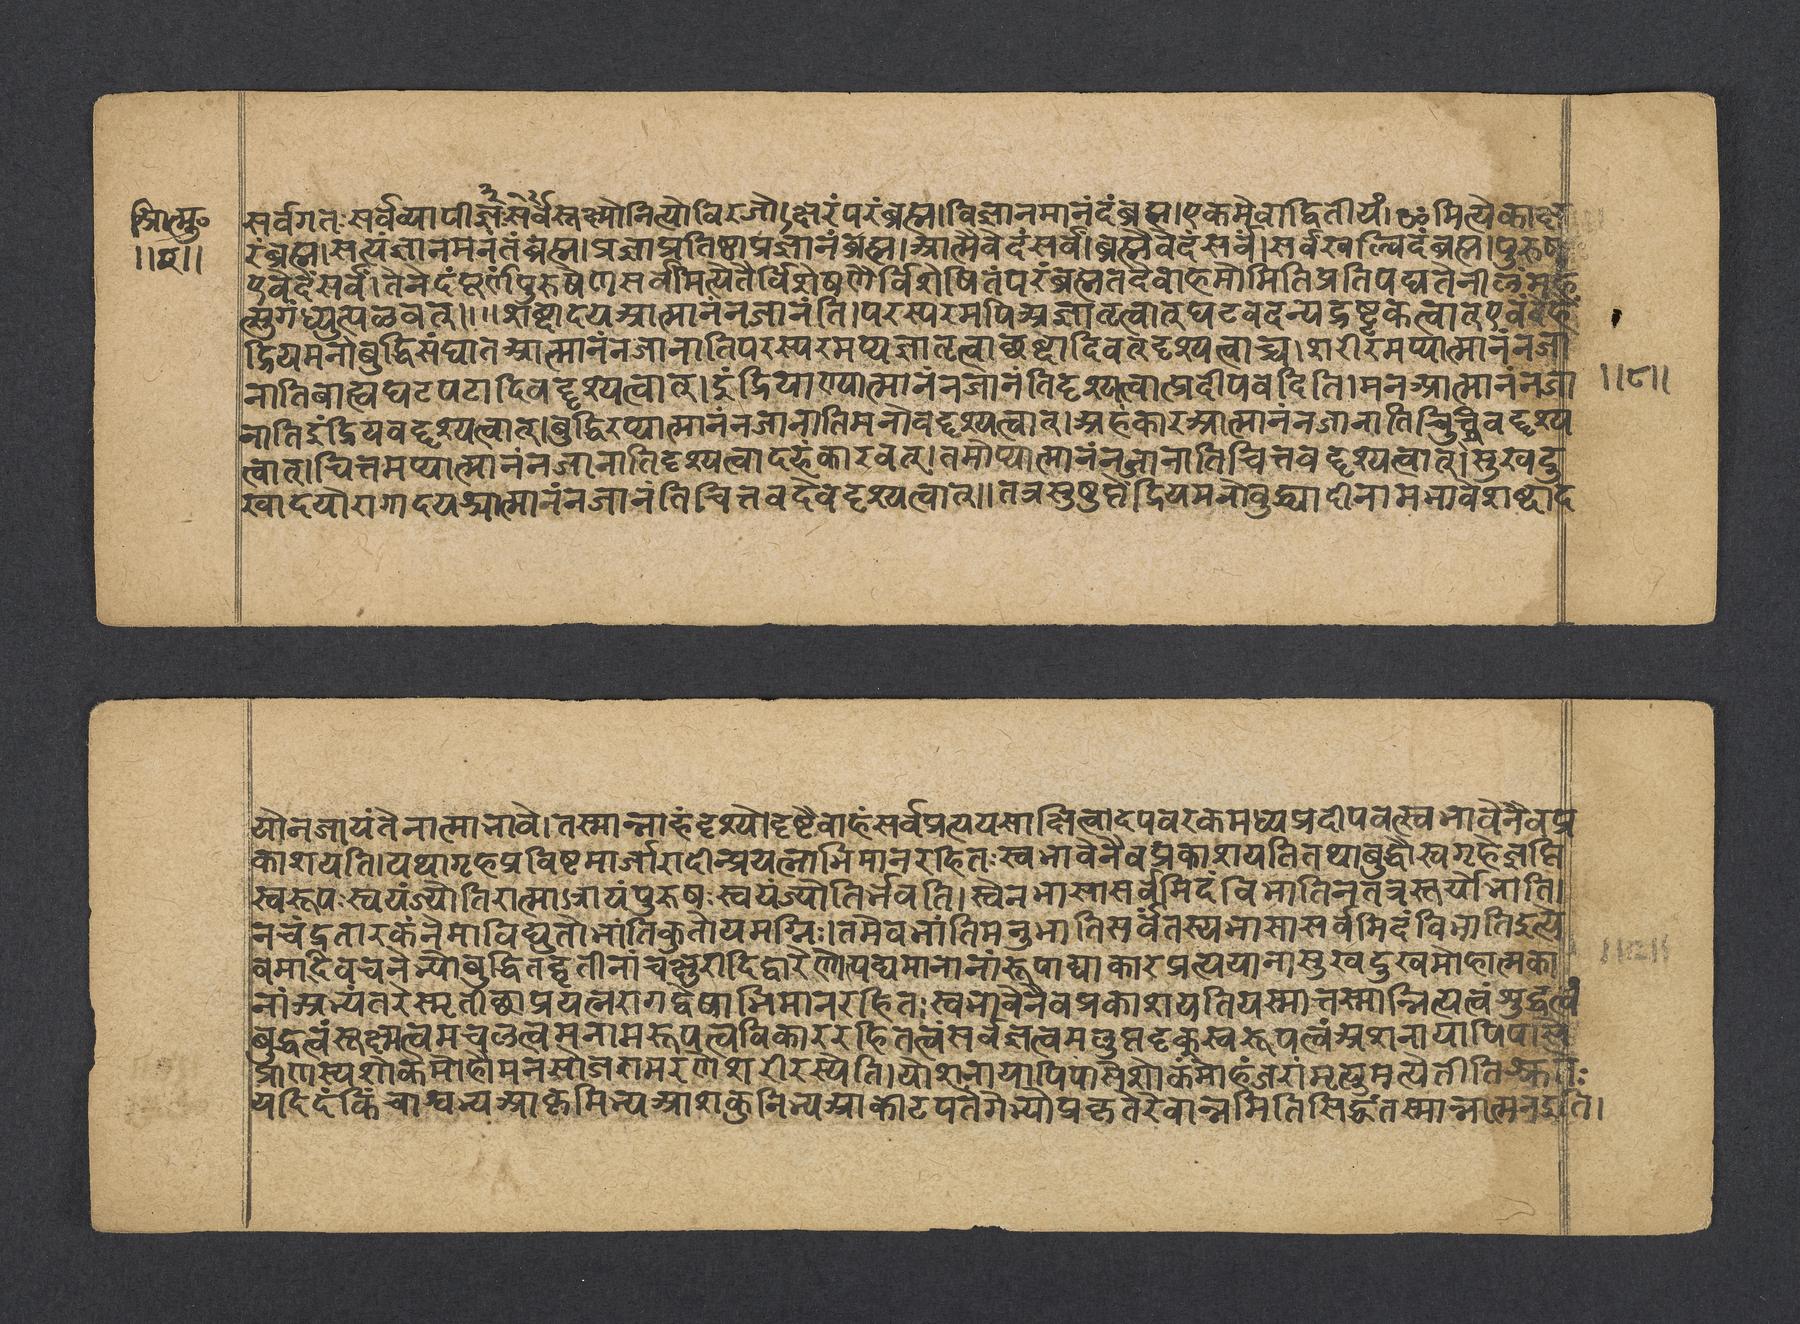 आत्मु॰
॥२॥
सर्वगतःसर्वव्यापीज्ञःसर्वसूक्ष्मोनित्योविरजोक्षरंपरंब्रह्म।विज्ञानमानंदंब्रह्म।एकमेवाद्वितीयं।ॐमित्येकाक्ष
रंब्रह्म।सत्यंज्ञानमनंतंब्रह्म।प्रज्ञाप्रतिष्ठाप्रज्ञानंब्रह्म।आत्मैवेदंसर्वं।ब्रह्मैवेदंसर्वं।सर्वंखल्विदंब्रह्म।पुरुष
एवेदंसर्वं।तेनेदंपूर्णंपुरुषेणसर्वमित्येतैर्विशेषणैर्विशेषितंपरंब्रह्मतदेवाहमोमितिप्रतिपद्यतेनीलंमह
त्सुगंध्युत्पळवत्॥॥शब्दादयआत्मानंनजानंति।परस्परमपिअज्ञातृत्वात्घटवदन्यद्रष्टृकत्वात्एवंदेहें
द्रियमनोबुद्धिसंघातआत्मानंनजानातिपरस्परमप्यज्ञातृत्वाच्छब्दादिवत्दृश्यत्वाच्च।शरीरमप्यात्मानंनजा
नातिबाह्यघटपटादिवद्दृश्यत्वात्।इंद्रियाण्यात्मानंनजानंतिदृश्यत्वात्प्रदीपवदिति।मनआत्मानंनजा
॥८॥
नातिइंद्रियवद्दृश्यत्वात्।बुद्धिरप्यात्मानंनजानातिमनोवद्दृश्यत्वात्।अहंकारआत्मानंनजानातिबुद्धिवद्दृश्य
त्वात्।चित्तमप्यात्मानंनजानातिदृश्यत्वादहंकारवत्।तमोप्यात्मानंनजानातिचित्तवद्दृश्यत्वात्।सुखदु
खादयोरागादयआत्मानंनजानंतिचित्तवदेवदृश्यत्वात्॥तत्रसुषुप्तेंद्रियमनोबुद्ध्यादीनामभावेशब्दाद
योनज्ञायंतेनात्माभावे।तस्मान्नाहंदृश्यो।दृष्टैवाहंसर्वप्रत्ययसाक्षित्वादपवरकमध्यप्रदीपवत्स्वभावेनैवप्र
काशयति।यथागृहप्रविष्टमार्जारादीन्प्रयत्नाभिमानरहितःस्वभावेनैवप्रकाशयतितथाबुद्धौस्वगृहेज्ञप्ति
स्वरूपःस्वयंज्योतिरात्माऽत्रायंपुरुषःस्वयंज्योतिर्भवति।स्वेनभासासर्वमिदंविभातिनतत्रसूर्योभाति।
नचंद्रतारकंनेमाविद्युतोभांतिकुतोयमग्निः।तमेवभांतिमनुभातिसर्वंतस्यभासासर्वमिदंविभातिइत्य
वमादिवचनेभ्योबुद्धितद्वृतीनांचक्षुरादिद्वारेणोत्पद्यमानानांरूपाद्याकारप्रत्ययानांसुखदुखमोहात्मका
नांअभ्यंतरेस्मृतीच्छाप्रयत्नरागद्वेषाभिमानरहितःस्वभावेनैवप्रकाशयतियस्मात्तस्मान्नित्यत्वंशुद्धत्वं
बुद्धत्वंसूक्ष्मत्वमचलत्वमनामरूपत्वविकाररहितत्वंसर्वज्ञत्वमलुप्तदृक्स्वरूपत्वंअशनायापिपासे
प्राणस्यशोकमोहौमनसोजरामरणेशरीरस्येति।योशनायापिपासेशोकंमोहंजरांमृत्युमत्येतीतिश्रुतेः
यदिदंकिंचाश्वभ्यआकृमिभ्यआशकुनिभ्यआकीटपतंगेभ्योप्रकृतेरेवान्नमितिसिद्धंतस्मान्नात्मनइति।